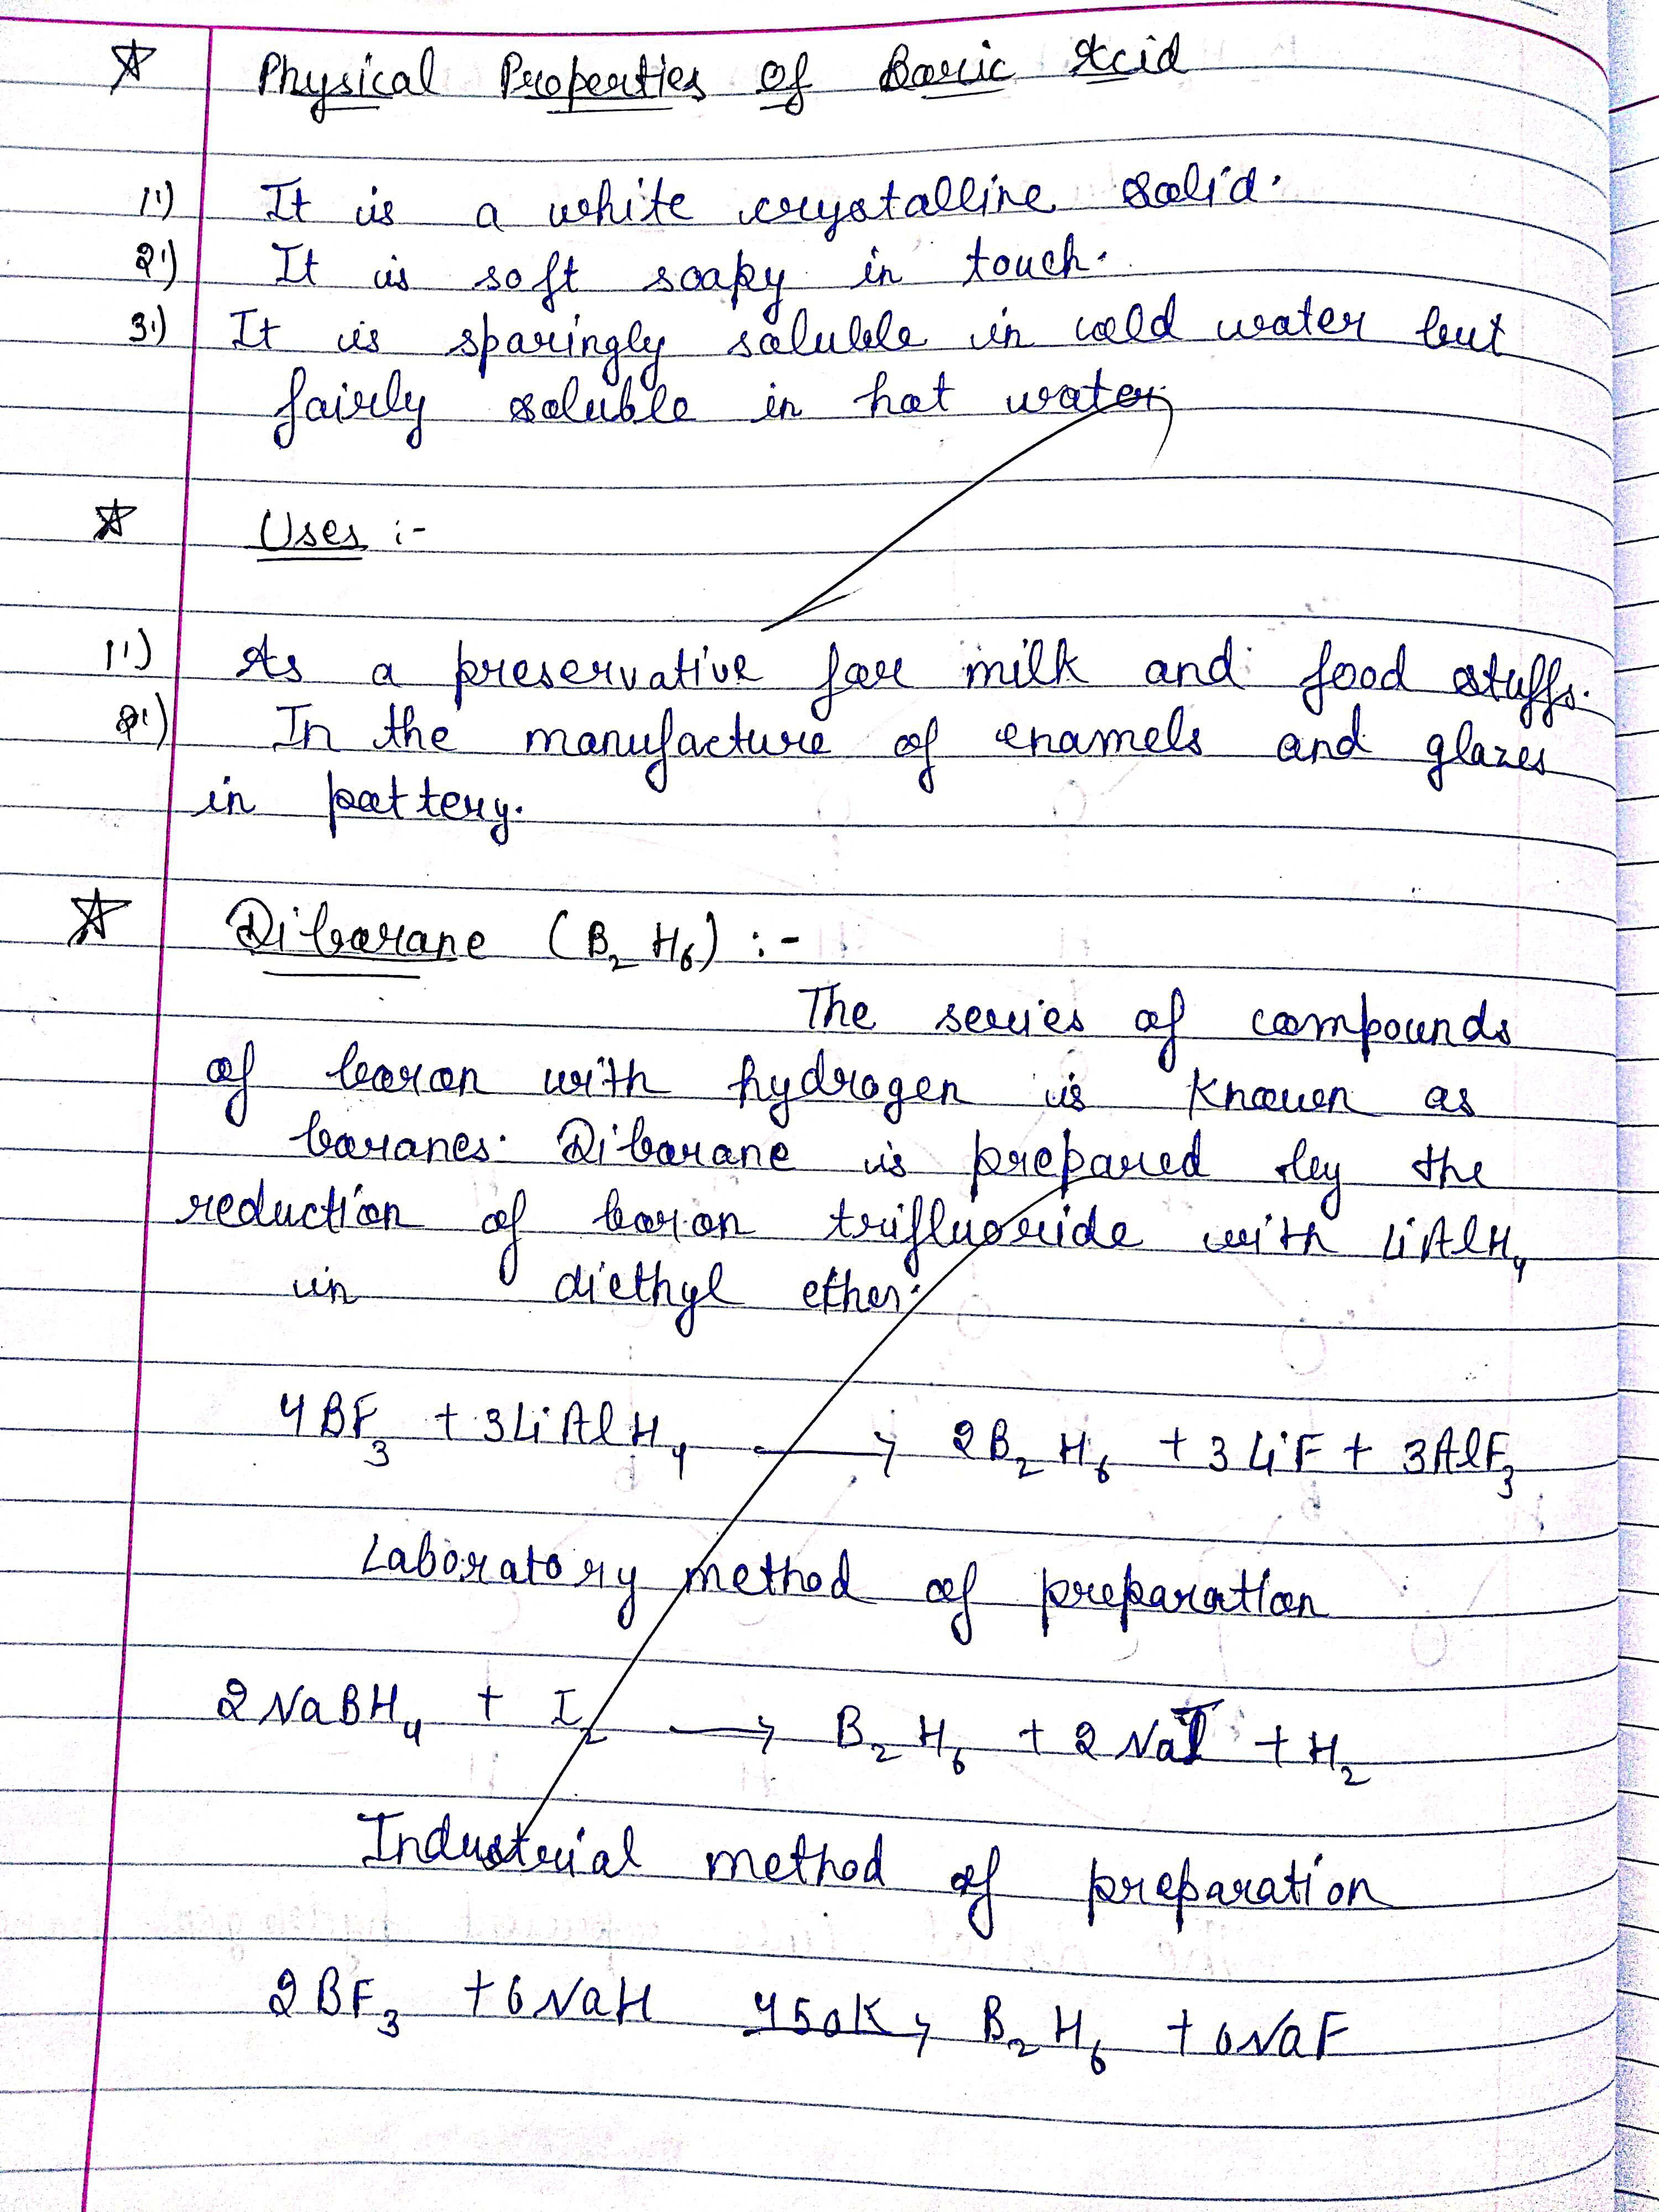 ☆ Physical Properties of Boric Acid
1.) It is a white crystalline solid.
2.) It is soft soapy in touch.
3.) It is sparingly soluble in cold water but
fairly soluble in hot water.
☆ Uses :-
1.) As a preservative for milk and food stuffs.
2.) In the manufacture of enamels and glazes
in pottery.
☆ Diborane (B₂H₆) :-
The series of compounds
of boron with hydrogen is known as
boranes. Diborane is prepared by the
reduction of boron trifluoride with LiAlH₄
in diethyl ether.
4BF₃ + 3LiAlH₄ ⟶ 2B₂H₆ + 3LiF + 3AlF₃
Laboratory method of preparation
2NaBH₄ + I₂ ⟶ B₂H₆ + 2NaI + H₂
Industrial method of preparation
2BF₃ + 6NaH 450K→ B₂H₆ + 6NaF